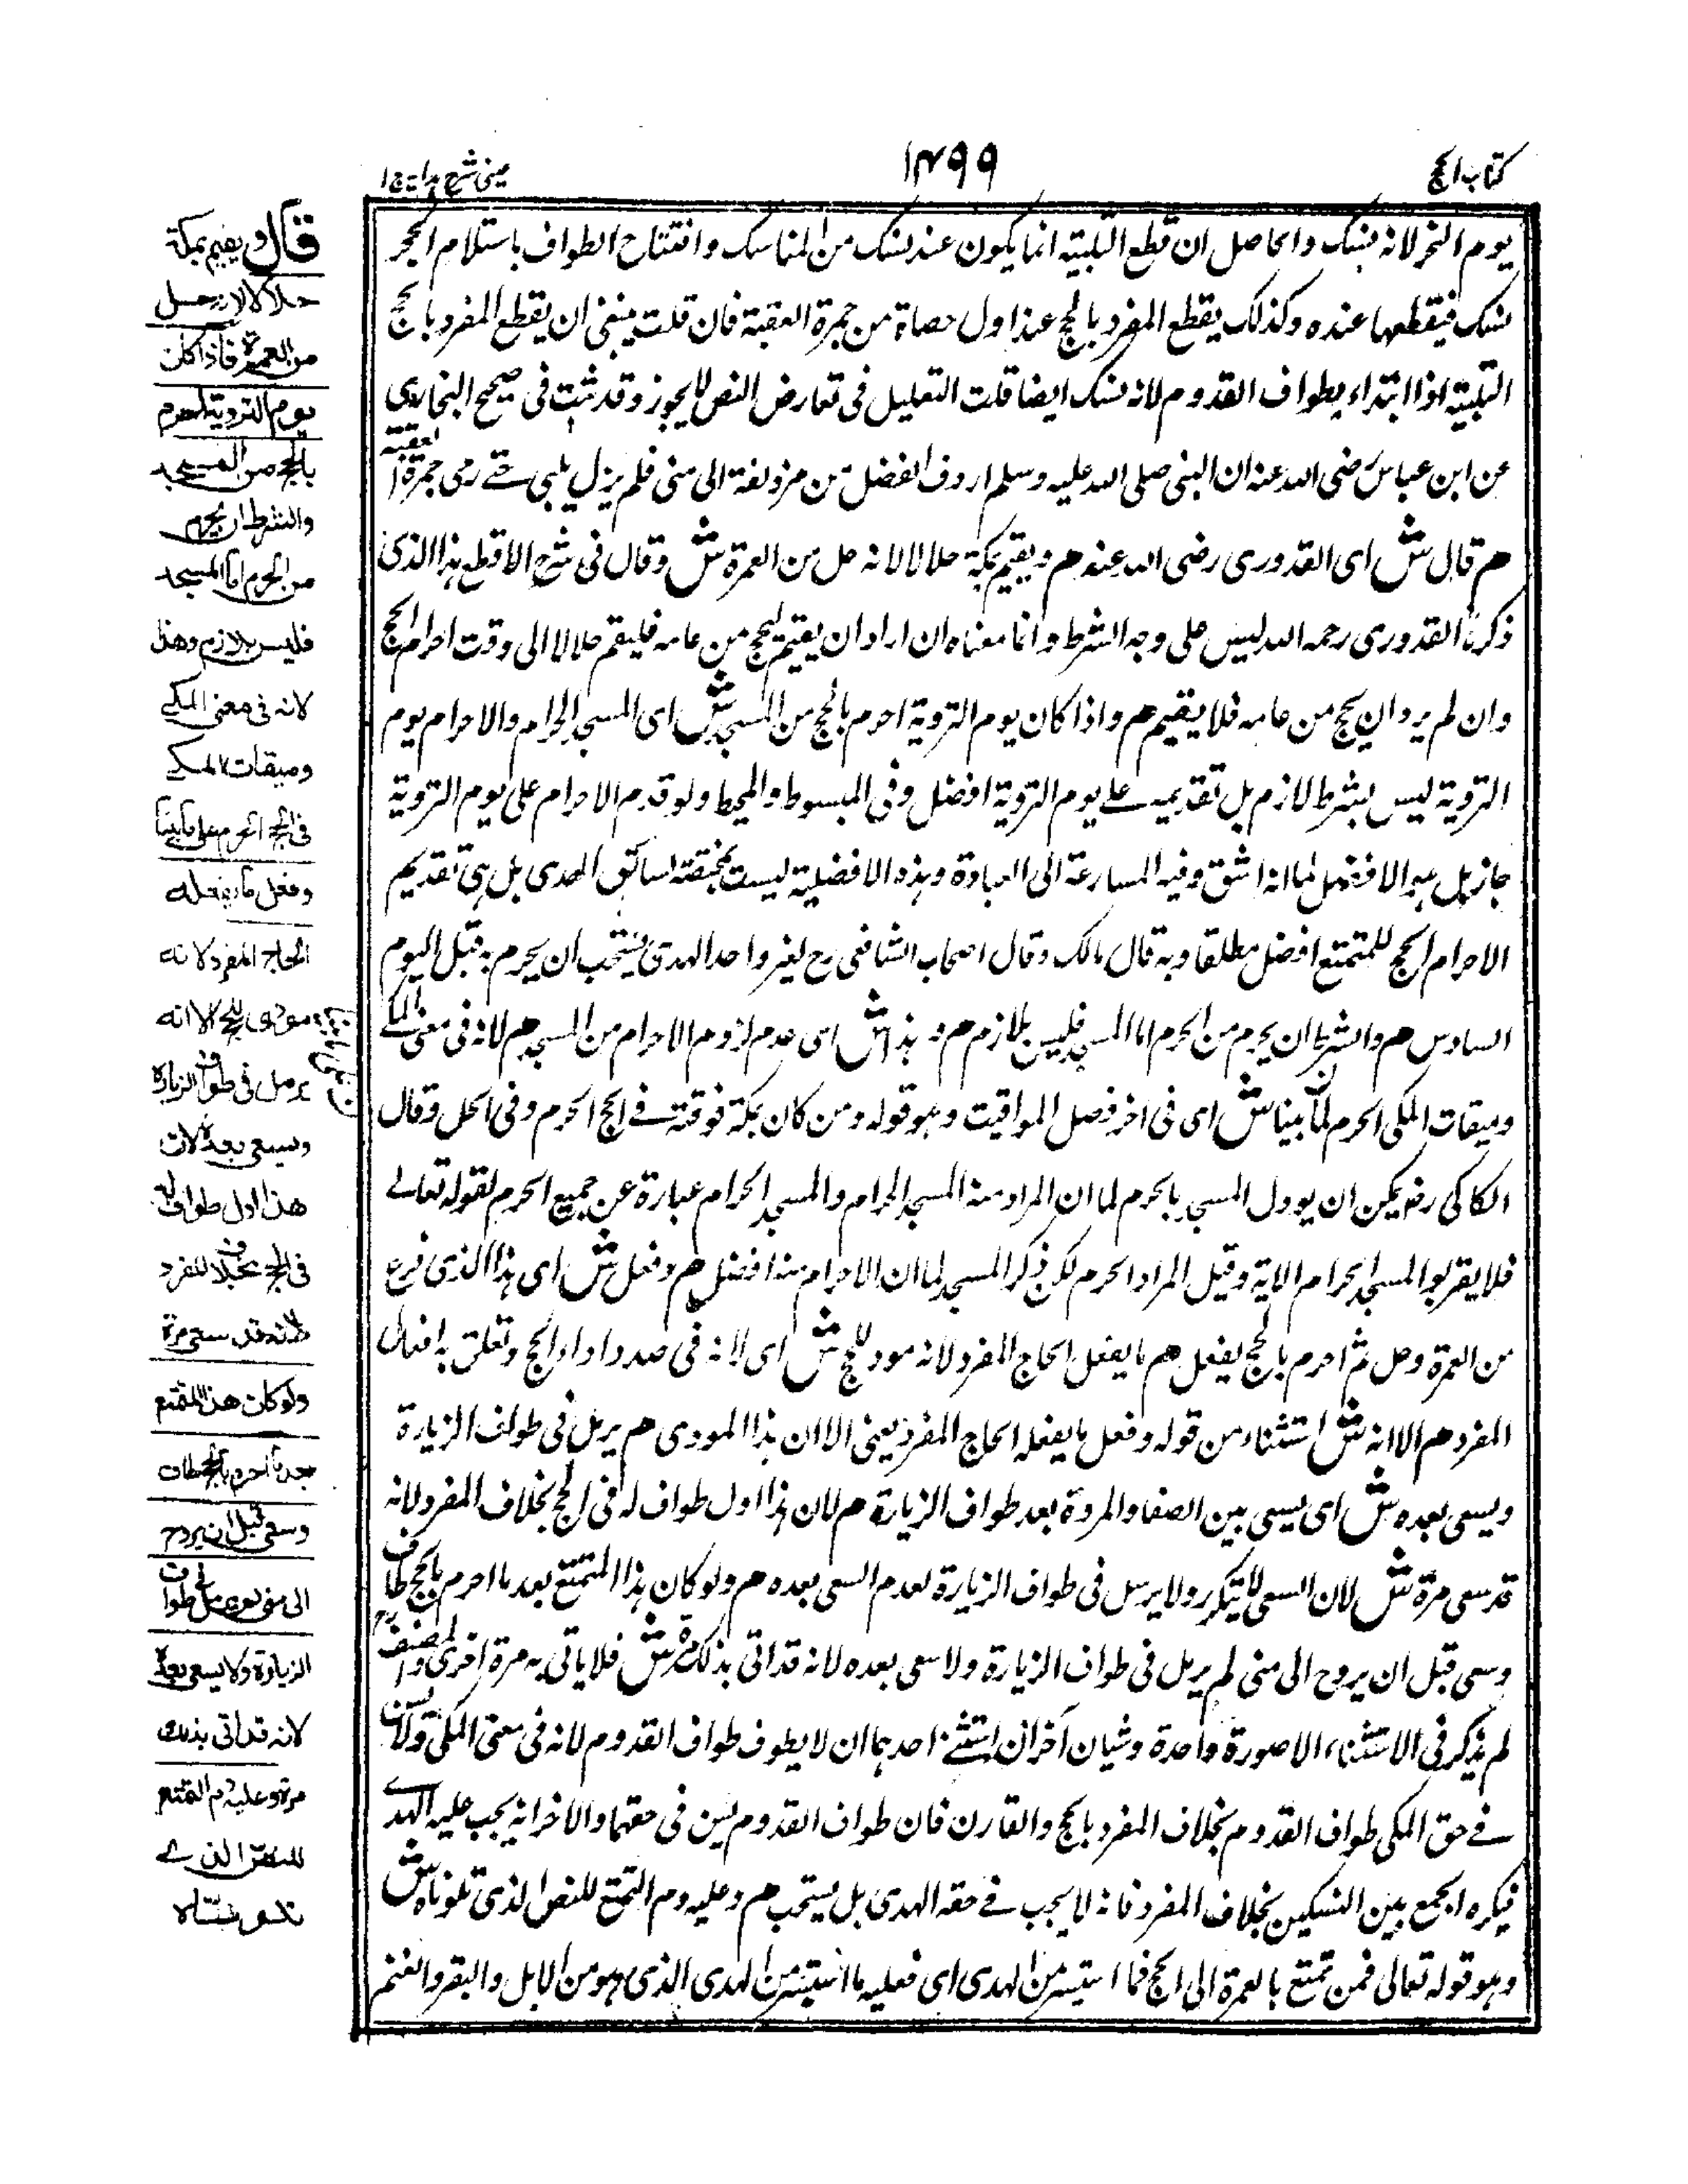 كتاب الحج
١٤٩٩
عينى شرح هدايه ج ١
يوم النحر لانه نسك والحاصل ان قطع التلبية انما يكون عند نسك من المناسك وافتتاح الطواف باستلام الحجر
نسك فيقطعها عنده وكذلك يقطع المفرد بالحج عند اول حصاة من جمرة العقبة فان قلت ينبغى ان يقطع المفرد بالحج
التلبية اذا ابتداء بطواف القدوم لانه نسك ايضا قلت التعليل فى تعارض النص لا يجوز وقد ثبت فى صحيح البخارى
عن ابن عباس رضى الله عنه ان النبى صلى الله عليه وسلم اردف الفضل من مزدلفة الى منى فلم يزل يلبى حتے رمى جمرة العقبة
هم قال ش اى القدورى رضى الله عنه هم ويقيم بمكة حلالا لانه حل من العمرة ش وقال فى شرح الاقطع هذا الذى
ذكره القدورى رحمه الله ليس على وجه الشرط وانما معناه ان اراد ان يقيم للحج من عامه فليقم حلالا الى وقت احرام الحج
وان لم يرد ان يحج من عامه فلا يقيم هم واذا كان يوم التروية احرم بالحج من المسجد ش اى المسجد الحرام والاحرام يوم
التروية ليس بشرط لازم بل تقديمه علے يوم التروية افضل وفى المبسوط والمحيط ولو قدم الاحرام على يوم التروية
جاز بل هو الافضل لما انه اشق وفيه المسارعة الى العبادة وهذه الافضلية ليست بمختصة لسائق الهدى بل هى تقديم
الاحرام الحج للمتمتع افضل مطلقا وبه قال مالك وقال اصحاب الشافعى رح لغير واجد الهدى يستحب ان يحرم به قبل اليوم
السادس هم والشرط ان يحرم من الحرم اما المسجد فليس بلازم هم وهذا ش اى عدم لزوم الاحرام من المسجد هم لانه فى معنى المكى
وميقات المكى الحرم لما بينا ش اى فى اخر فصل المواقيت وهو قوله ومن كان بمكة فوقته فے الحج الحرم وفى الحل وقال
الكاكى رح يمكن ان يوول المسجد بالحرم لما ان المراد منه المسجد الحرام والمسجد الحرام عبارة عن جميع الحرم لقوله تعالے
فلا يقربوا المسجد الحرام الاية وقيل المراد الحرم لكن ذكر المسجد لما ان الاحرام منه افضل هم وفعل ش اى هذا الذى فرغ
من العمرة وحل ثم احرم بالحج يفعل هم ما يفعل الحاج المفرد لانه مود للحج ش اى لانه فى صدد اداء الحج وتعلق به افعال
المفرد هم الا انه ش استثناء من قوله وفعل ما يفعله الحاج المفرد يعنى الا ان هذا المودى هم يرمل فى طواف الزيارة
ويسعى بعده ش اى يسعى بين الصفا والمروة بعد طواف الزيارة هم لان هذا اول طواف له فى الحج بخلاف المفرد لانه
قد سعى مرة ش لان السعى لا يتكرر ولا يرمل فى طواف الزيارة لعدم السعى بعده هم ولو كان هذا المتمتع بعد ما احرم بالحج طاف
وسعى قبل ان يروح الى منى لم يرمل فى طواف الزيارة ولا سعى بعده لانه قد اتى بذلك مرة ش فلا ياتى به مرة اخرى والمصنف رح
لم يذكر فى الاستثناء الا صورة واحدة وشيان آخران استثنے احدهما ان لا يطوف طواف القدوم لانه فى معنى المكى ولا يسن
فے حق المكى طواف القدوم بخلاف المفرد بالحج والقارن فان طواف القدوم يسن فى حقهما والاخر انه يجب عليه الهدے
فيكره الجمع بين النسكين بخلاف المفرد فانه لا يجب فے حقه الهدى بل يستحب هم وعليه دم التمتع للنص الذى تلوناه ش
وهو قوله تعالى فمن تمتع بالعمرة الى الحج فما استيسر من الهدى اى فعليه ما استيسر من الهدى الذى هو من الابل والبقر والغنم
قال ويقيم بمكة
حلالا لانه حل
من العمرة فاذا كان
يوم التروية احرم
بالحج من المسجد
والشرط ان يحرم
من الحرم اما المسجد
فليس بلازم وهذا
لانه فى معنى المكے
وميقات المكے
فى الحج الحرم على ما بينا
وفعل ما يفعله
الحاج المفرد لانه
مودى للحج الا انه
يرمل فى طواف الزيارة
ويسعى بعده لان
هذا اول طواف له
فى الحج بخلاف المفرد
لانه قد سعى مرة
ولو كان هذا المتمتع
بعد ما احرم بالحج طاف
وسعى قبل ان يروح
الى منى لم يرمل فى طواف
الزيارة ولا يسعى بعده
لانه قد اتى بذلك
مرة وعليه دم التمتع
للنص الذے
تلوناه